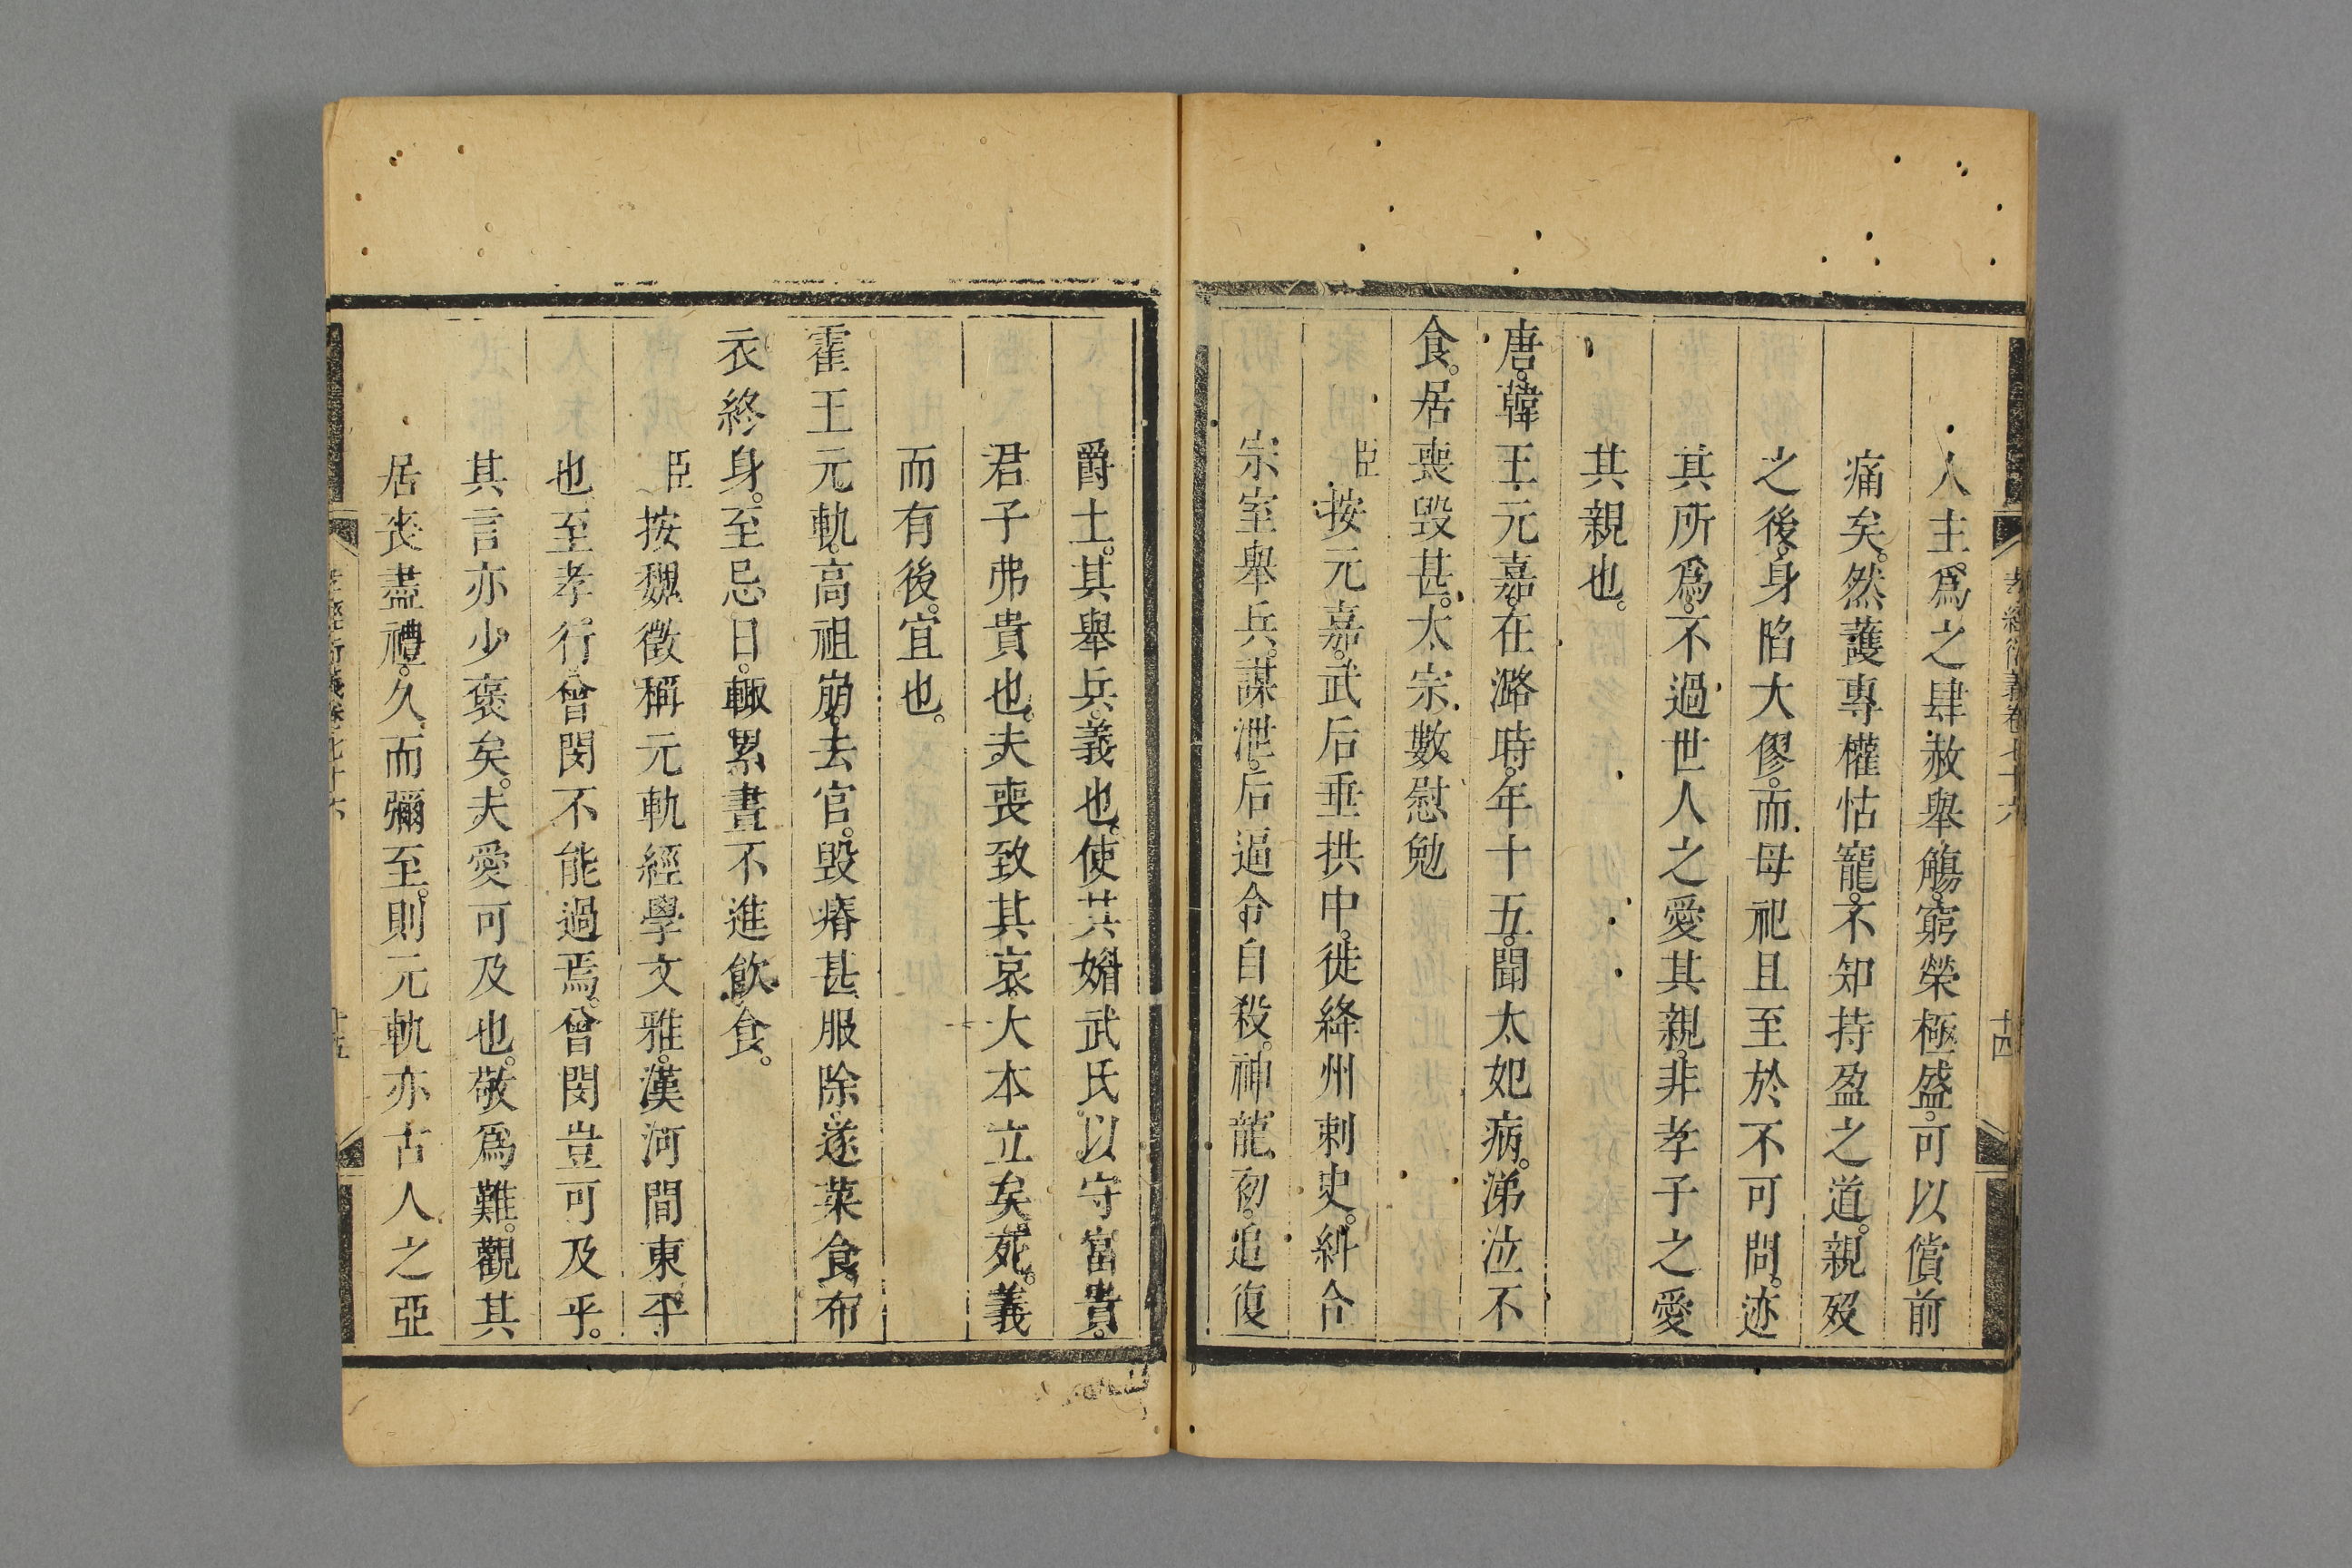 孝經衍義卷七十六
十四
人主。爲之肆赦舉觴。窮榮極盛。可以償前
痛矣。然護專權怙寵。不知持盈之道。親歿
之後。身陷大僇。而母祀且至於不可問。迹
其所爲。不過世人之愛其親。非孝子之愛
其親也。
唐。韓王元嘉。在潞時。年十五。聞太妃病。涕泣不
食。居喪毀甚。太宗數慰勉
臣按元嘉。武后垂拱中。徙絳州刺史。糾合
宗室舉兵。謀泄。后逼令自殺。神龍初。追復
爵土。其舉兵。義也。使其媚武氏。以守富貴。
君子弗貴也。夫喪致其哀。大本立矣。死。義
而有後。宜也。
霍王元軌。高祖崩。去官。毀瘠甚。服除。遂菜食布
衣終身。至忌日。輒累晝不進飲食。
臣按魏徵稱元軌經學文雅。漢河間東平
也。至孝行。曾閔不能過焉。曾閔豈可及乎。
其言亦少褒矣。夫愛可及也。敬爲難。觀其
居喪盡禮。久而彌至。則元軌亦古人之亞
孝經衍義卷七十六
十五